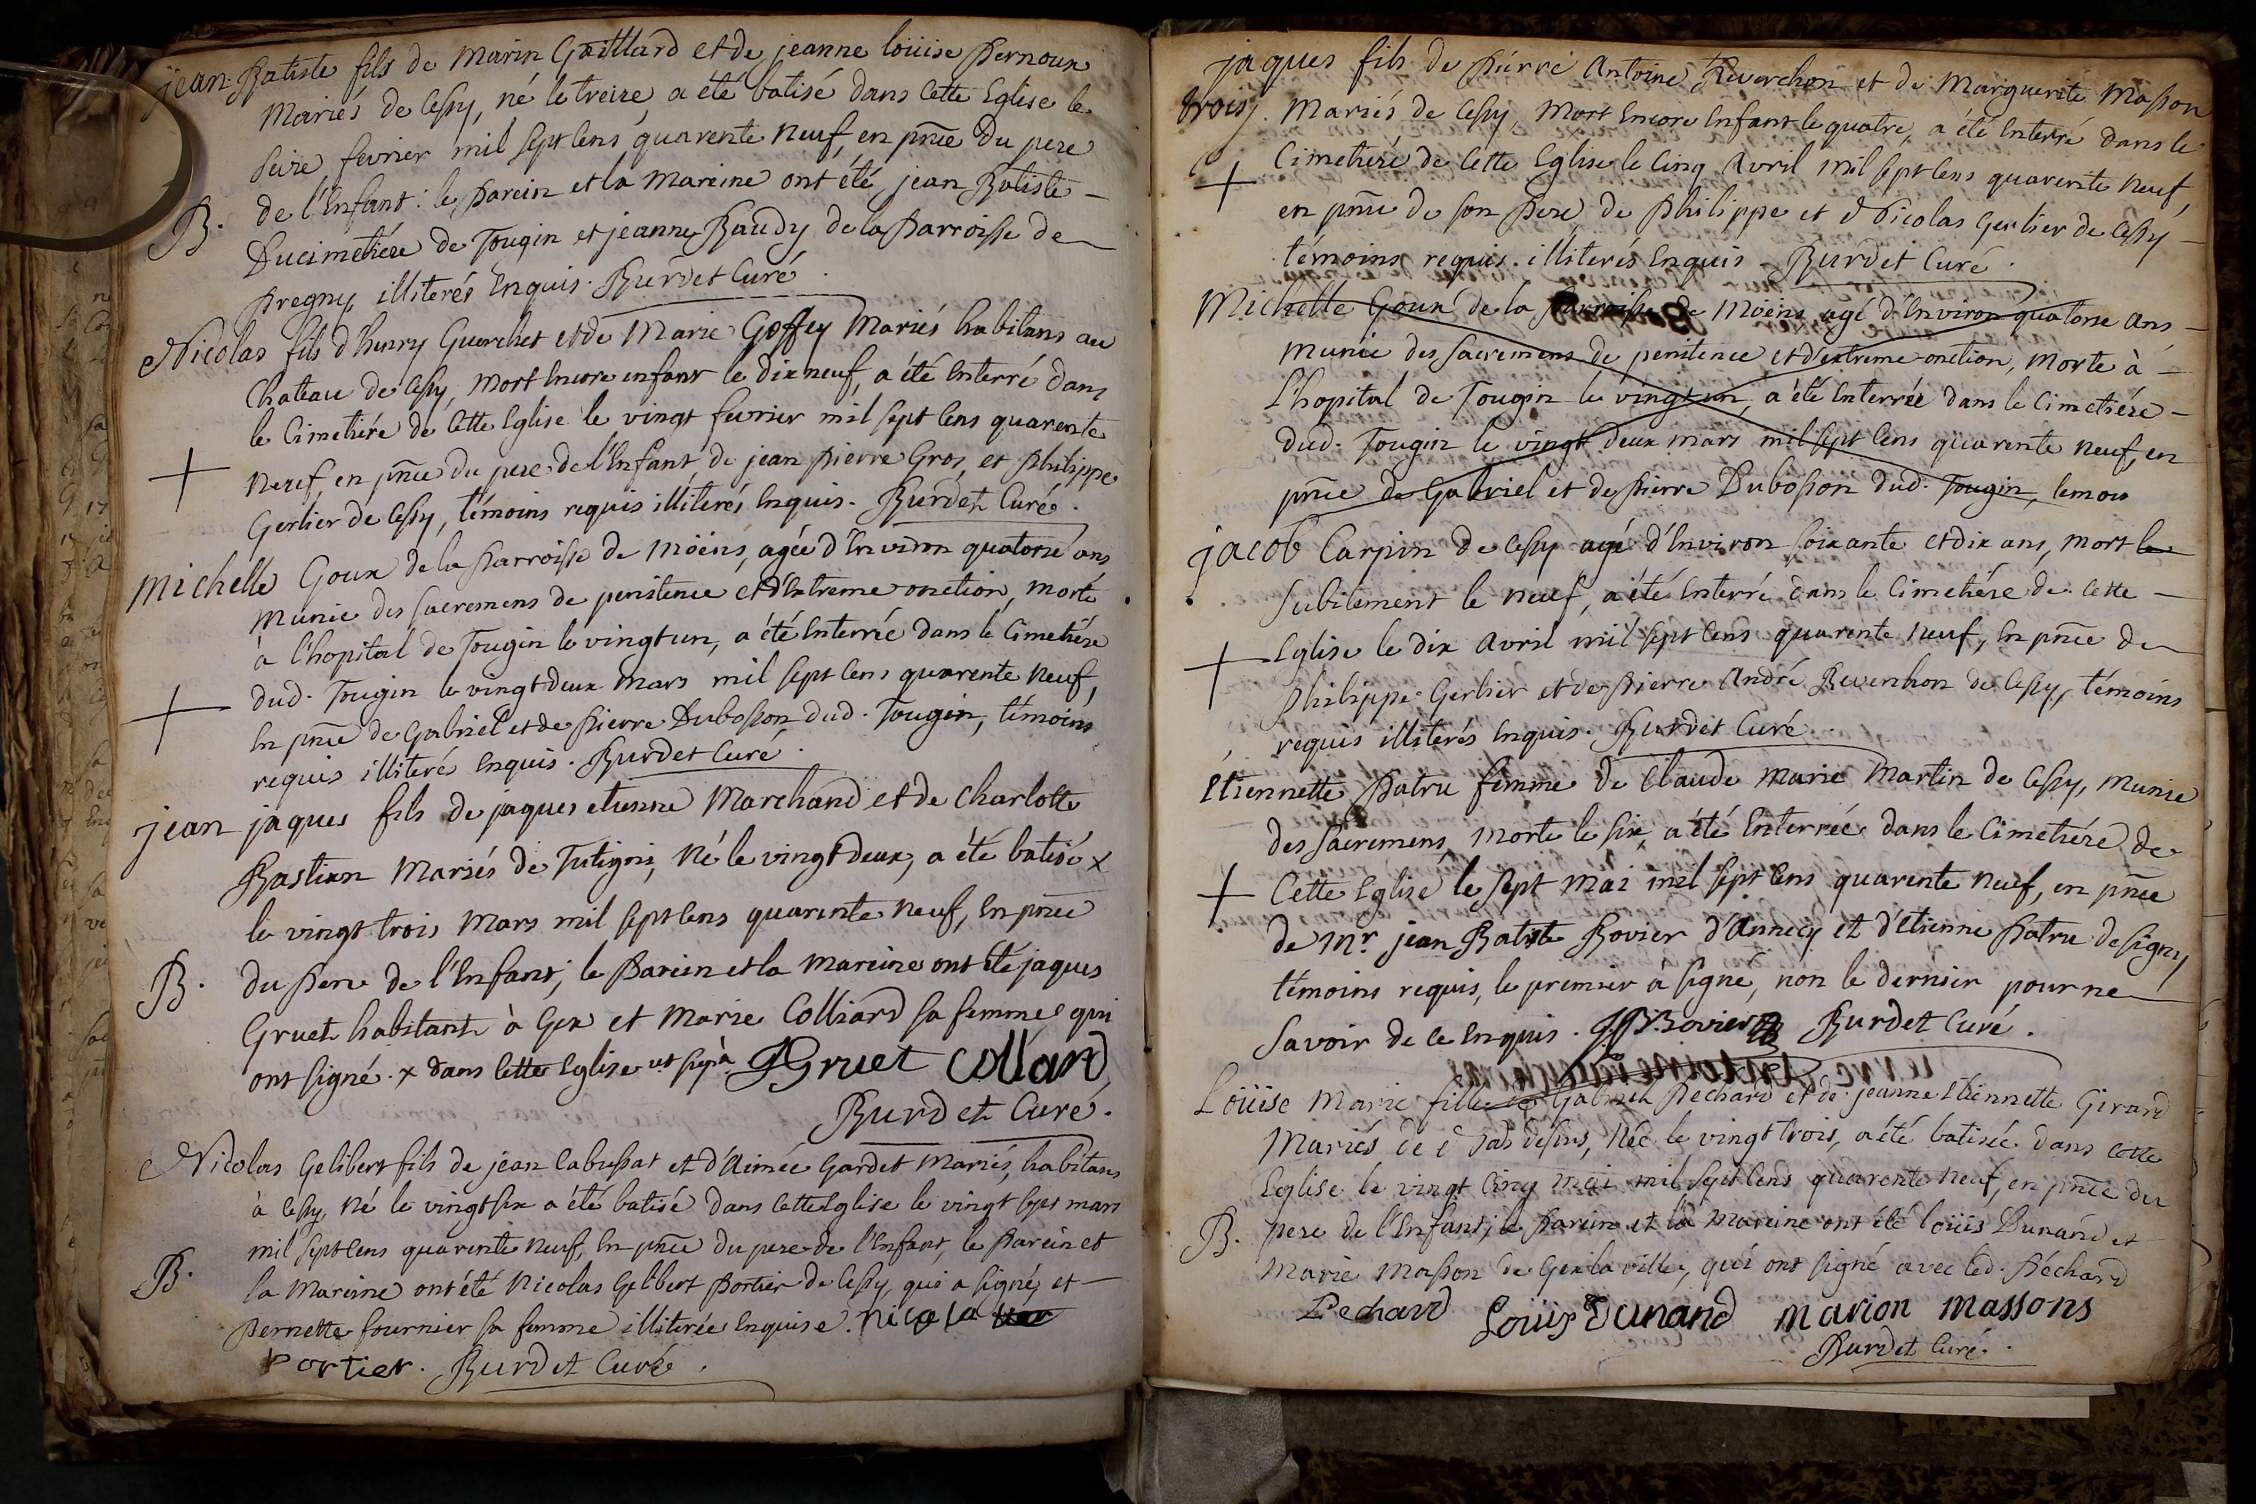 jean-Batiste fils de Marin Gaillard et de jeanne loüise Pernoux
Mariés de Cessy, né le treize, a été batisé dans Cette Eglise le
seize fevrier mil sept Cens quarente neuf, en pñce du pere
B. de l'Enfant: le parein et la Mareine ont été jean Batiste
Ducimetiére de Tougin et jeanne Baudy de la Parroisse de
Pregny, illiterés Enquis. Burdet Curé.
Nicolas fils d'henry Guerchet et de Marie Goffey Mariés habitans au
Chateau de Cessy, Mort Encore enfant le dixneuf, a été Enterré dans
le Cimetiére de Cette Eglise le vingt fevrier mil sept Cens quarente
+ Neuf, en pñce du pere de l'Enfant, de jean pierre Gros, et philippe
Gerlier de Cessy, témoins requis illiterés Enquis. Burdet Curé.
Michelle Goux de la Parroisse de Möens, agée d'Environ quatorze ans
Munie des sacremens de penitence et d'Extreme onction, morte
à l'hopital de Tougin le vingt un, a été Enterrée dans le Cimetiére
+ dud. Tougin le vingt deux Mars mil sept Cens quarente neuf,
En pñce de Gabriel et de Pierre Dubosson dud. Tougin, témoins
requis illiteré Enquis. Burdet Curé.
jean jaques fils de jaques etienne Marchand et de Charlotte
Bastian Mariés de Tutigni, Né le vingt deux, a été batisé x
le vingt trois Mars mil sept Cens quarente neuf, En pñce
B. du Pere de l'Enfant; le Parein et la Mareine ont été jaques
Gruet habitant à Gex et Marie Colliard sa femme qui
ont signé. x dans Cette Eglise ut suprà JGruet Collard
Burdet Curé.
Nicolas Gelibert fils de jean Cabussat et d'Aimée Gardet Mariés, habitans
à Cessy, Né le vingt six a été batisé dans Cette Eglise le vingt sept mars
mil sept Cens quarente neuf, En pñce du pere de l'Enfant, le Parein et
B. la Mareine ont été Nicolas Gelibert Portier de Cessy, qui a signé, et
Pernette fournier sa femme illiterée Enquise. Nicola
Portier. Burdet Curé.
jaques fils de Pierre Antoine Reverchon et de Marguerite Masson
trois. Mariés de Cessy, Mort Encore Enfant le quatre, a été Enterré dans le
Cimetiére de Cette Eglise le Cinq Avril mil sept Cens quarente neuf,
+ en pñce de son Pere de Philippe et Nicolas Gerlier de Cessy
témoins requis. illiterés Enquis. Burdet Curé.
Michelle Goux de la Parroisse de Möens agé d'Environ quatorze ans,
munie des sacremens de penitence et d'extreme-onction, Morte à
l'hopital de Tougin le vingt un, a été Enterrée dans le Cimetiére
dud. Tougin le vingt deux mars mil sept Cens quarente neuf, en
pñce de Gabriel et de Pierre Dubosson dud. Tougin, temoi
jacob Carpin de Cessy agé d'Environ soixante et dix ans, Mort le
subitement le neuf, a été Enterré dans le Cimetiére de Cette
+ Eglise le dix Avril mil sept Cens quarente neuf, En pñce de
Philippe Gerlier et de Pierre André Reverchon de Cessy, témoins
requis illiterés Enquis. Burdet Curé.
Etiennette Patru femme de Claude Marie Martin de Cessy, munie
des sacremens, Morte le six, a été Enterrée dans le Cimetiére de
+ Cette Eglise le sept Mai mil sept Cens quarente neuf, en pñce
de Mr. jean Batiste Bovier d'Annecy et d'Etienne Patru de signy,
témoins requis, le premier à signé, non le dernier pour ne
savoir de ce Enquis. JBBovier Burdet Curé.
Loüise Marie fille de Gabriel Pechard et de jeanne Etiennette Girard
Mariés de Pas dessus, Née le vingt trois, a été batisée dans cette
Eglise le vingt Cinq Mai mil sept Cens quarente neuf, en pñce du
B. pere de l'Enfant; le Parein et la Mareine ont été loüis Dunand et
Marie Masson de Gex la ville, qui ont signé avec led. Péchard
Pechard Loüis Dunand Marion Massons
Burdet Curé.